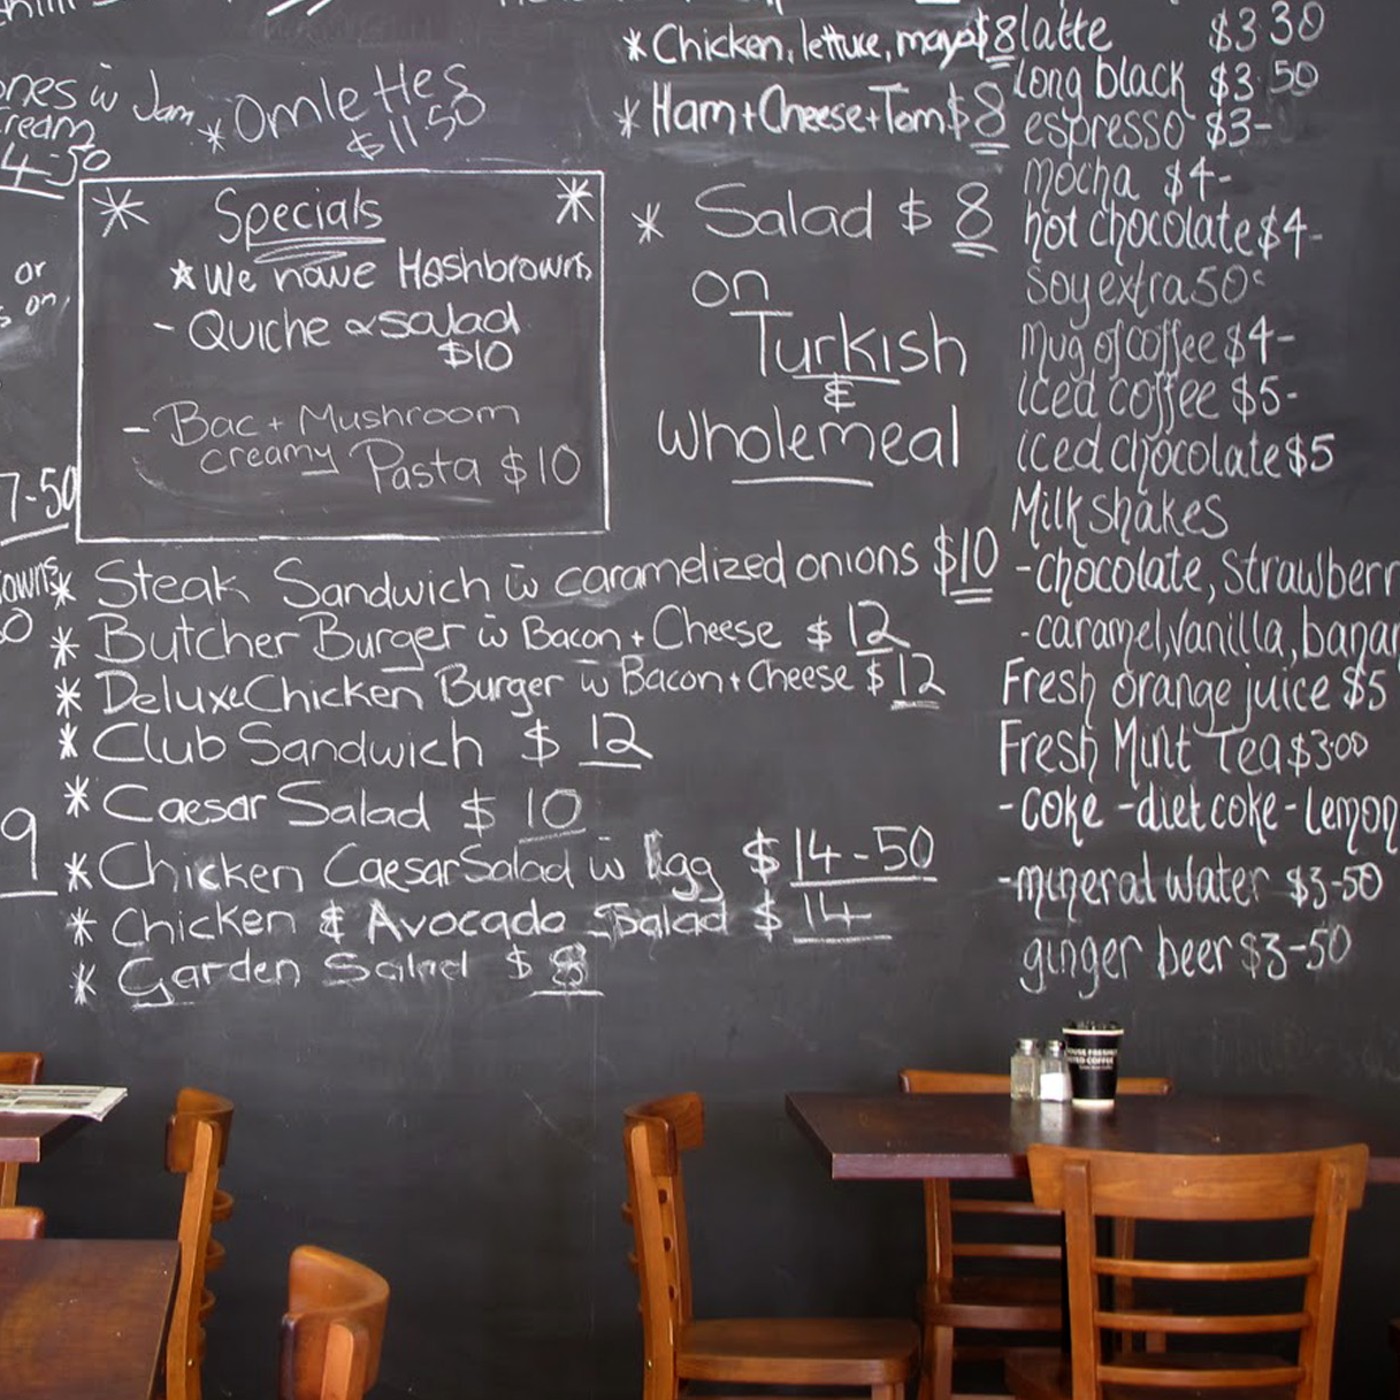 ones w Jam
cream
4-50
* Omlettes
$11.50
or
on
7-50
owns
9
* Specials *
* We have Hashbrowns
- Quiche & salad
$10
- Bac + Mushroom
creamy Pasta $10
* Chicken, lettuce, mayo $8
* Ham + Cheese + Tom $8
* Salad $8
on
Turkish
&
Wholemeal
* Steak Sandwich w caramelized onions $10
* Butcher Burger w Bacon + Cheese $12
* Deluxe Chicken Burger w Bacon + Cheese $12
* Club Sandwich $12
* Caesar Salad $10
* Chicken Caesar Salad w Egg $14-50
* Chicken & Avocado Salad $14
* Garden Salad $8
latte $3 30
long black $3 50
espresso $3-
mocha $4-
hot chocolate $4-
Soy extra 50c
mug of coffee $4-
iced coffee $5-
iced chocolate $5
Milkshakes
- chocolate, Strawberr
- caramel, vanilla, banan
Fresh orange juice $5
Fresh Mint Tea $3.00
- coke - diet coke - Lemon
- mineral water $3-50
ginger beer $3-50